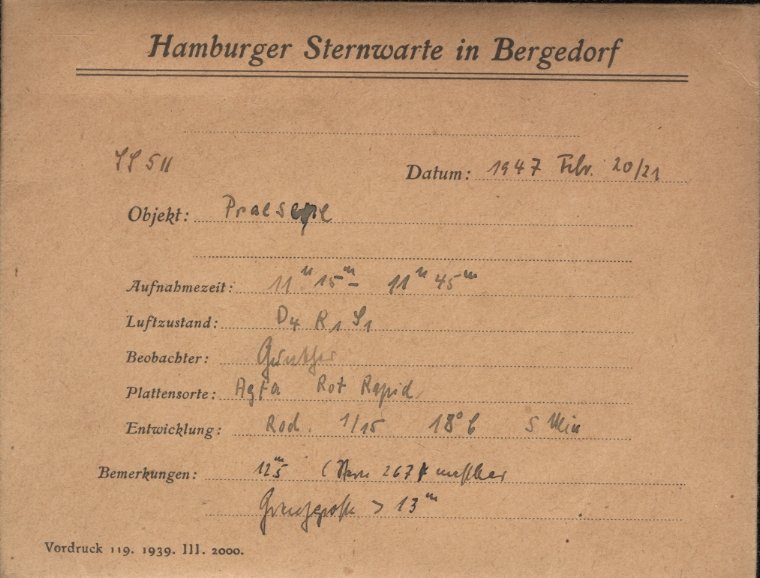 Hamburger Sternwarte in Bergedorf
Datum: 1947 Febr. 20/21
Objekt: Praesepe
Aufnahmezeit: 11ʰ 15ᵐ – 11ʰ 45ᵐ
Luftzustand: D4 R1 S1
Beobachter: Günther
Plattensorte: Agfa Rot Rapid
Entwicklung: Rod. 1/15 18° C 5 Min
Bemerkungen: 12ᵐ5 (Stern 267) messbar
Grenzgröße > 13ᵐ
Vordruck 119. 1939. III. 2000.